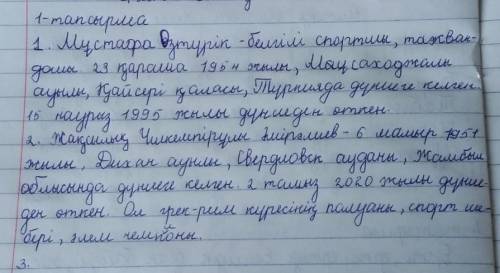 1-тапсырма
1. Мұстафа Өзтүрік - белгілі спортшы, таэквон-
дошы. 23 қараша 1954 жылы,
ауылы, Қайсері қаласы, Түркияда дүниеге келген.
15 наурыз 1995 жылы дүниеден өткен.
2. Жақсылық Үмкемпірұлы - 6 мамыр 1951
жылы, Дихан ауылы, Свердловск ауданы, Жамбыл
облысында дүниеге келген. 2 тамыз 2020 жылы дүние-
ден өткен. Ол грек-рим күресінің полуаны, спорт ше-
бері, әлем чемпионы.
3.